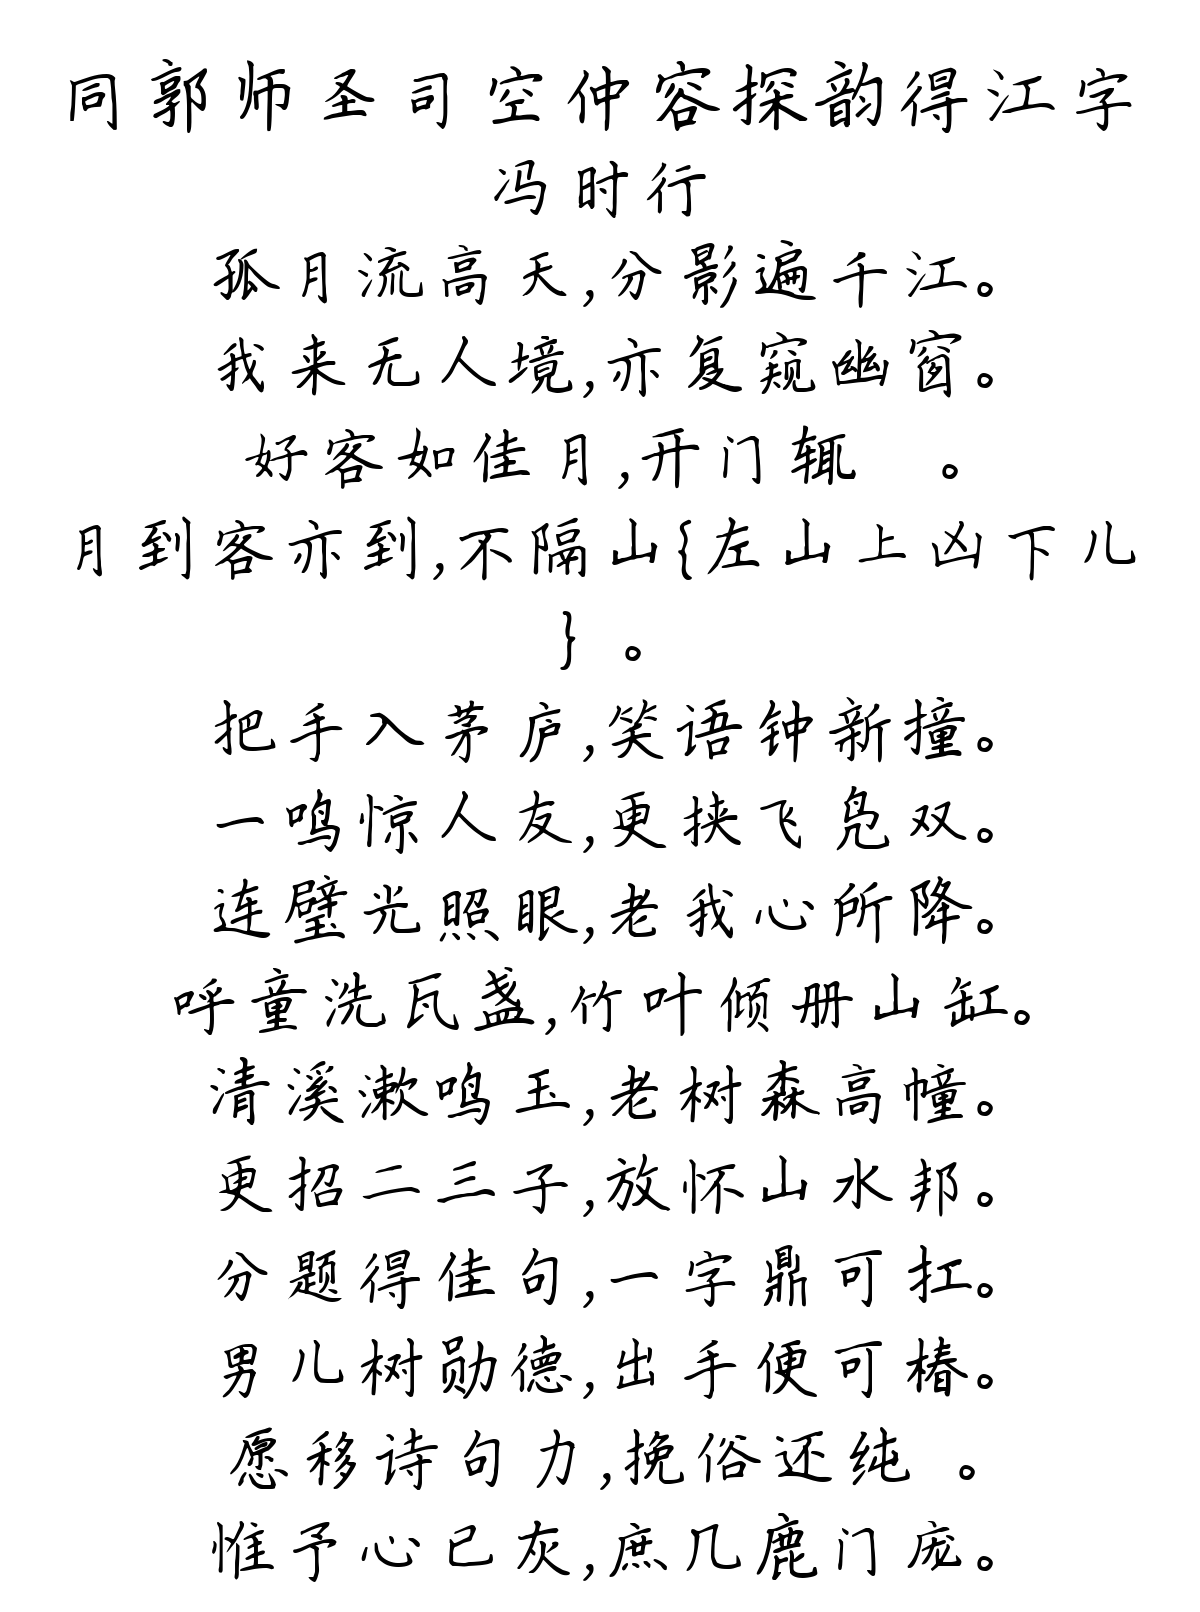 同郭师圣司空仲容探韵得江字
冯时行
孤月流高天,分影遍千江。
我来无人境,亦复窥幽窗。
好客如佳月,开门辄 。
月到客亦到,不隔山{左山上凶下儿
} 。
把手入茅庐,笑语钟新撞。
一鸣惊人友,更挟飞凫双。
连璧光照眼,老我心所降。
呼童洗瓦盏,竹叶倾册山缸。
清溪漱鸣玉,老树森高幢。
更招二三子,放怀山水邦。
分题得佳句,一字鼎可扛。
男儿树勋德,出手便可椿。
愿移诗句力,挽俗还纯 。
惟予心已灰,庶几鹿门庞。